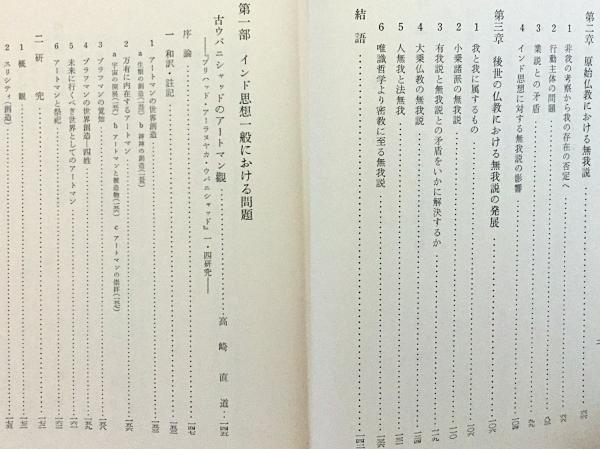 第二章 原始仏教における無我説
1 非我の考察から我の存在の否定へ
2 行動主体の問題
3 業説との矛盾
4 インド思想に対する無我説の影響
第三章 後世の仏教における無我説の発展
1 我と我に属するもの
2 小乗諸派の無我説
3 有我説と無我説との矛盾をいかに解決するか
4 大乗仏教の無我説
5 人無我と法無我
6 唯識哲学より密教に至る無我説
結語
第一部 インド思想一般における問題
古ウパニシャッドのアートマン観 高崎直道 一四五
――『ブリハッド・アーラヌヤカ・ウパニシャッド』一・四研究――
序論 一四七
一 和訳・註記
1 アートマンの世界創造
a 生類の創造 b 諸神の創造
2 万有に内在するアートマン
a 宇宙の展開 b アートマンと被造物 c アートマンの崇拝
3 ブラフマンの覚知
4 ブラフマンの世界創造―四姓
5 未来に行くべき世界としてのアートマン
6 アートマンと祭祀
二 研究
1 概観
2 スリシティ(創造)